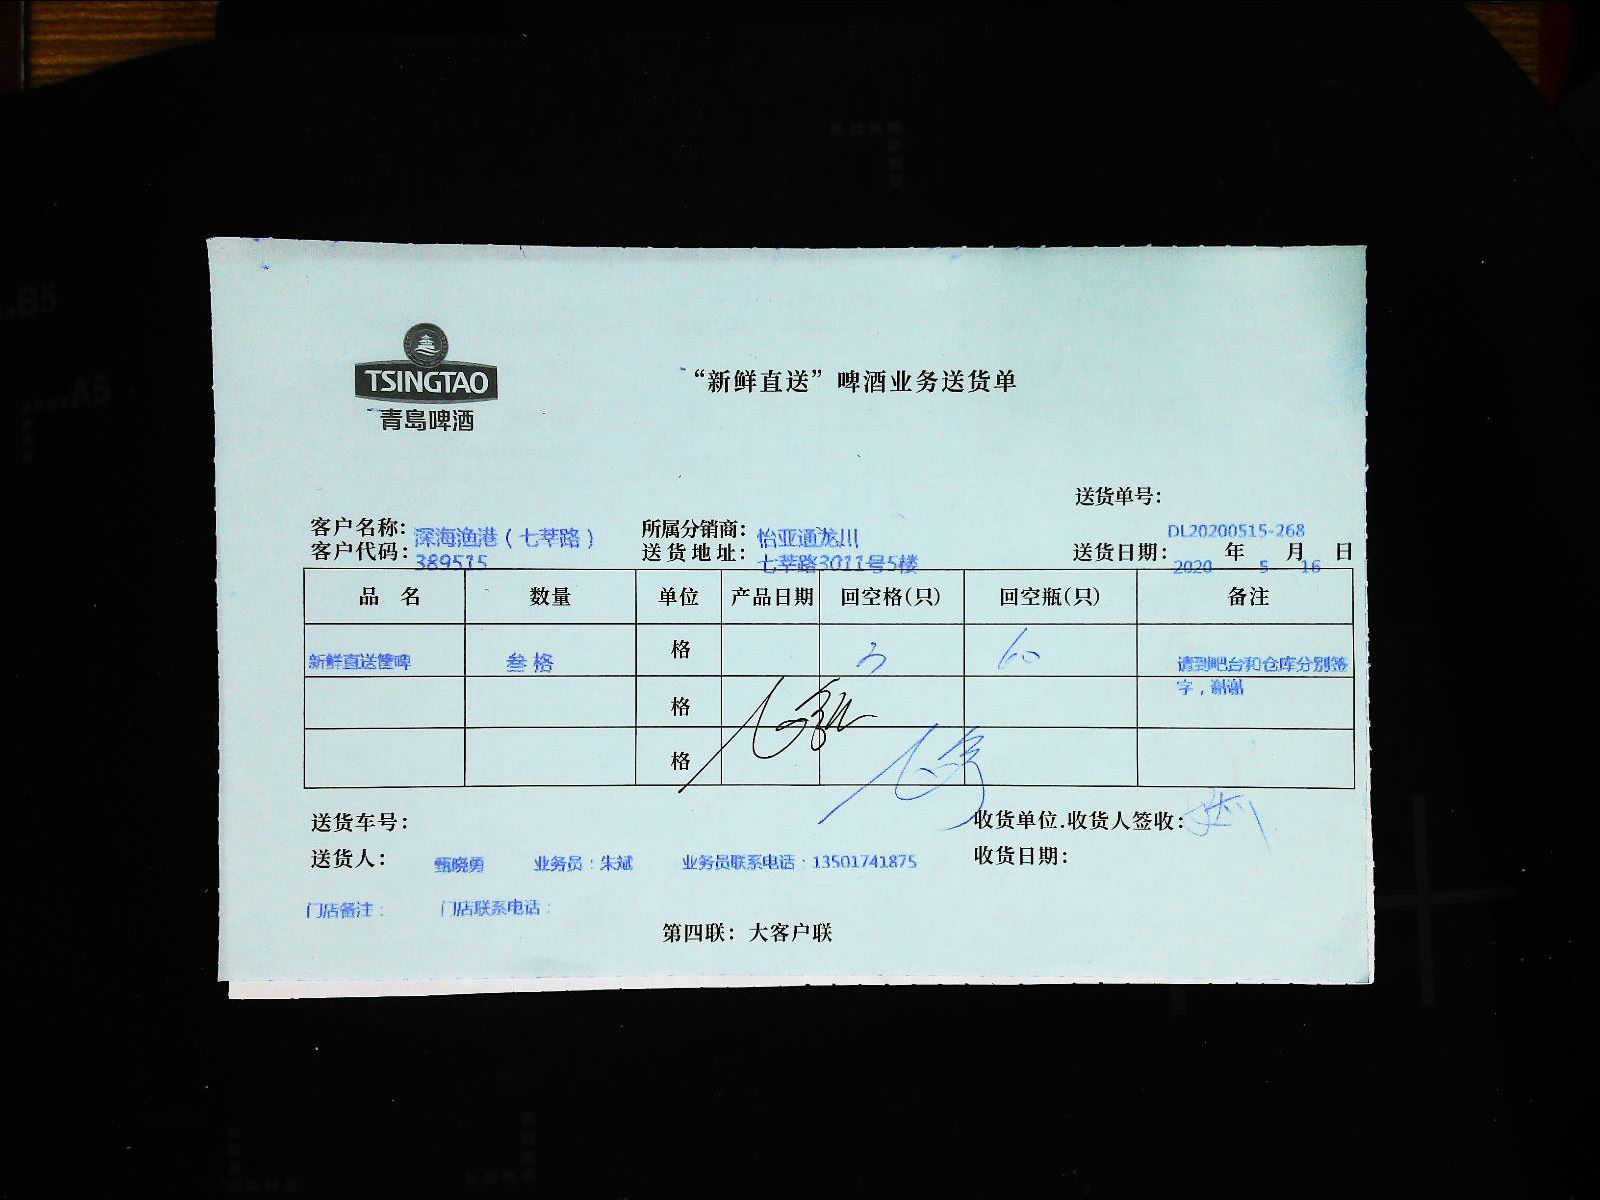 TSINGTAO
青岛啤酒
“新鲜直送”啤酒业务送货单
送货单号：
DL20200515-268
客户名称：深海渔港（七莘路） 所属分销商：怡亚通龙川
客户代码：389515 送货地址：七莘路3011号5楼 送货日期：2020年5月16日
品 名 数量 单位 产品日期 回空格(只) 回空瓶(只) 备注
新鲜直送筐啤 叁格 格 3 60 请到吧台和仓库分别签字，谢谢
格
格
送货车号： 收货单位.收货人签收：
送货人： 甄晓勇 业务员：朱斌 业务员联系电话：13501741875 收货日期：
门店备注： 门店联系电话：
第四联：大客户联